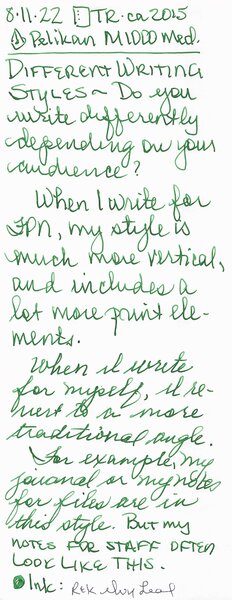 8.11.22 TR. ca 2015
Pelikan M1000 Med.
DIFFERENT WRITING
STYLES ~ Do you
write differently
depending on your
audience?
When I write for
FPN, my style is
much more vertical,
and includes a
lot more print ele-
ments.
When I write
for myself, I re-
vert to a more
traditional angle.
For example, my
journal or my notes
for files are in
this style. But my
NOTES FOR STAFF OFTEN
LOOK LIKE THIS.
Ink: R&K Ivy Leaf